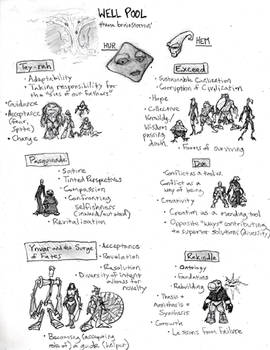 WELL POOL
theme brainstormin'
HUR
HEM
Tey-rah
• Adaptability
• Taking responsibility for
the "sins of our Fathers"
• Guidance
• Acceptance
(fear,
spite)
• Change
Exceed
• Sustainable Civilization
• Corruption of Civilization
• Hope
• Collective
Knowledge/
Wisdom
passing
death
• Forms of surviving
Pasquinade
• Satire
• Tinted Perspectives
• Compassion
• Confronting
Selfishness
(inward/outward)
• Revitalization
Conflict as a tool vs.
Conflict as a way
of being.
• Creativity
• Creation as a mending tool
• Opposite "ways" contributing
to superior solution (diversity)
Ymur and the Surge
of Fates
• Acceptance
• Revolution
• Resolution
• Diversity of intent
allows for
novelty
• Becoming (assuming
role of) a guide (helper)
Rekindle
• Ontology
• Foundations
• Rebuilding
• Thesis +
Antithesis =
Synthesis
• Lessons from failure